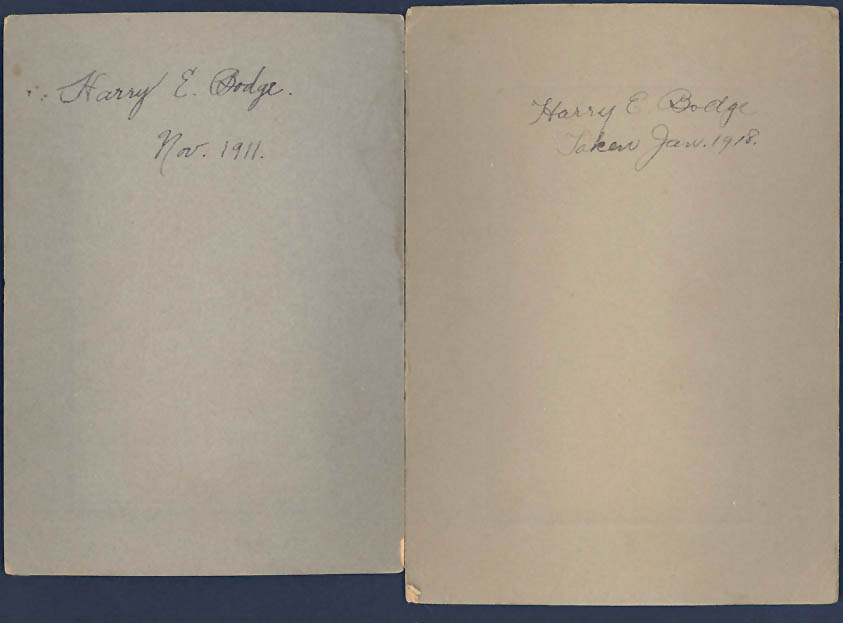 Harry E. Bodge.
Nov. 1911.
Harry E Bodge
Taken Jan. 1918.